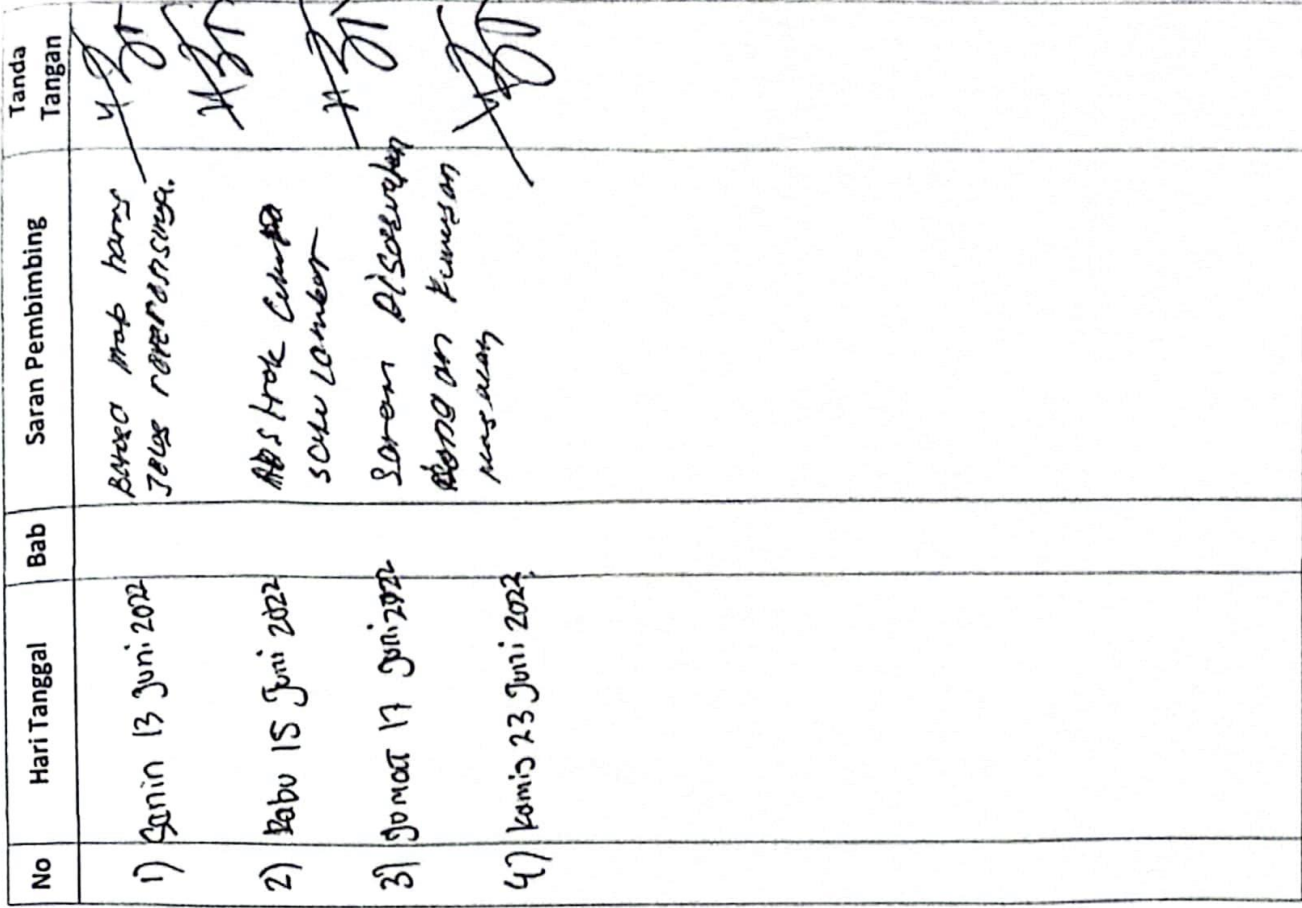 No Hari Tanggal Bab Saran Pembimbing Tanda Tangan
1) Senin 13 Juni 2022
harus
Jelas referensinya.
2) Rabu 15 Juni 2022
Abstrak Cukup
satu lambar
3) Jumat 17 Juni 2022
Saran Disesuaikan
Dengan Rumusan
masalah
4) Kamis 23 Juni 2022